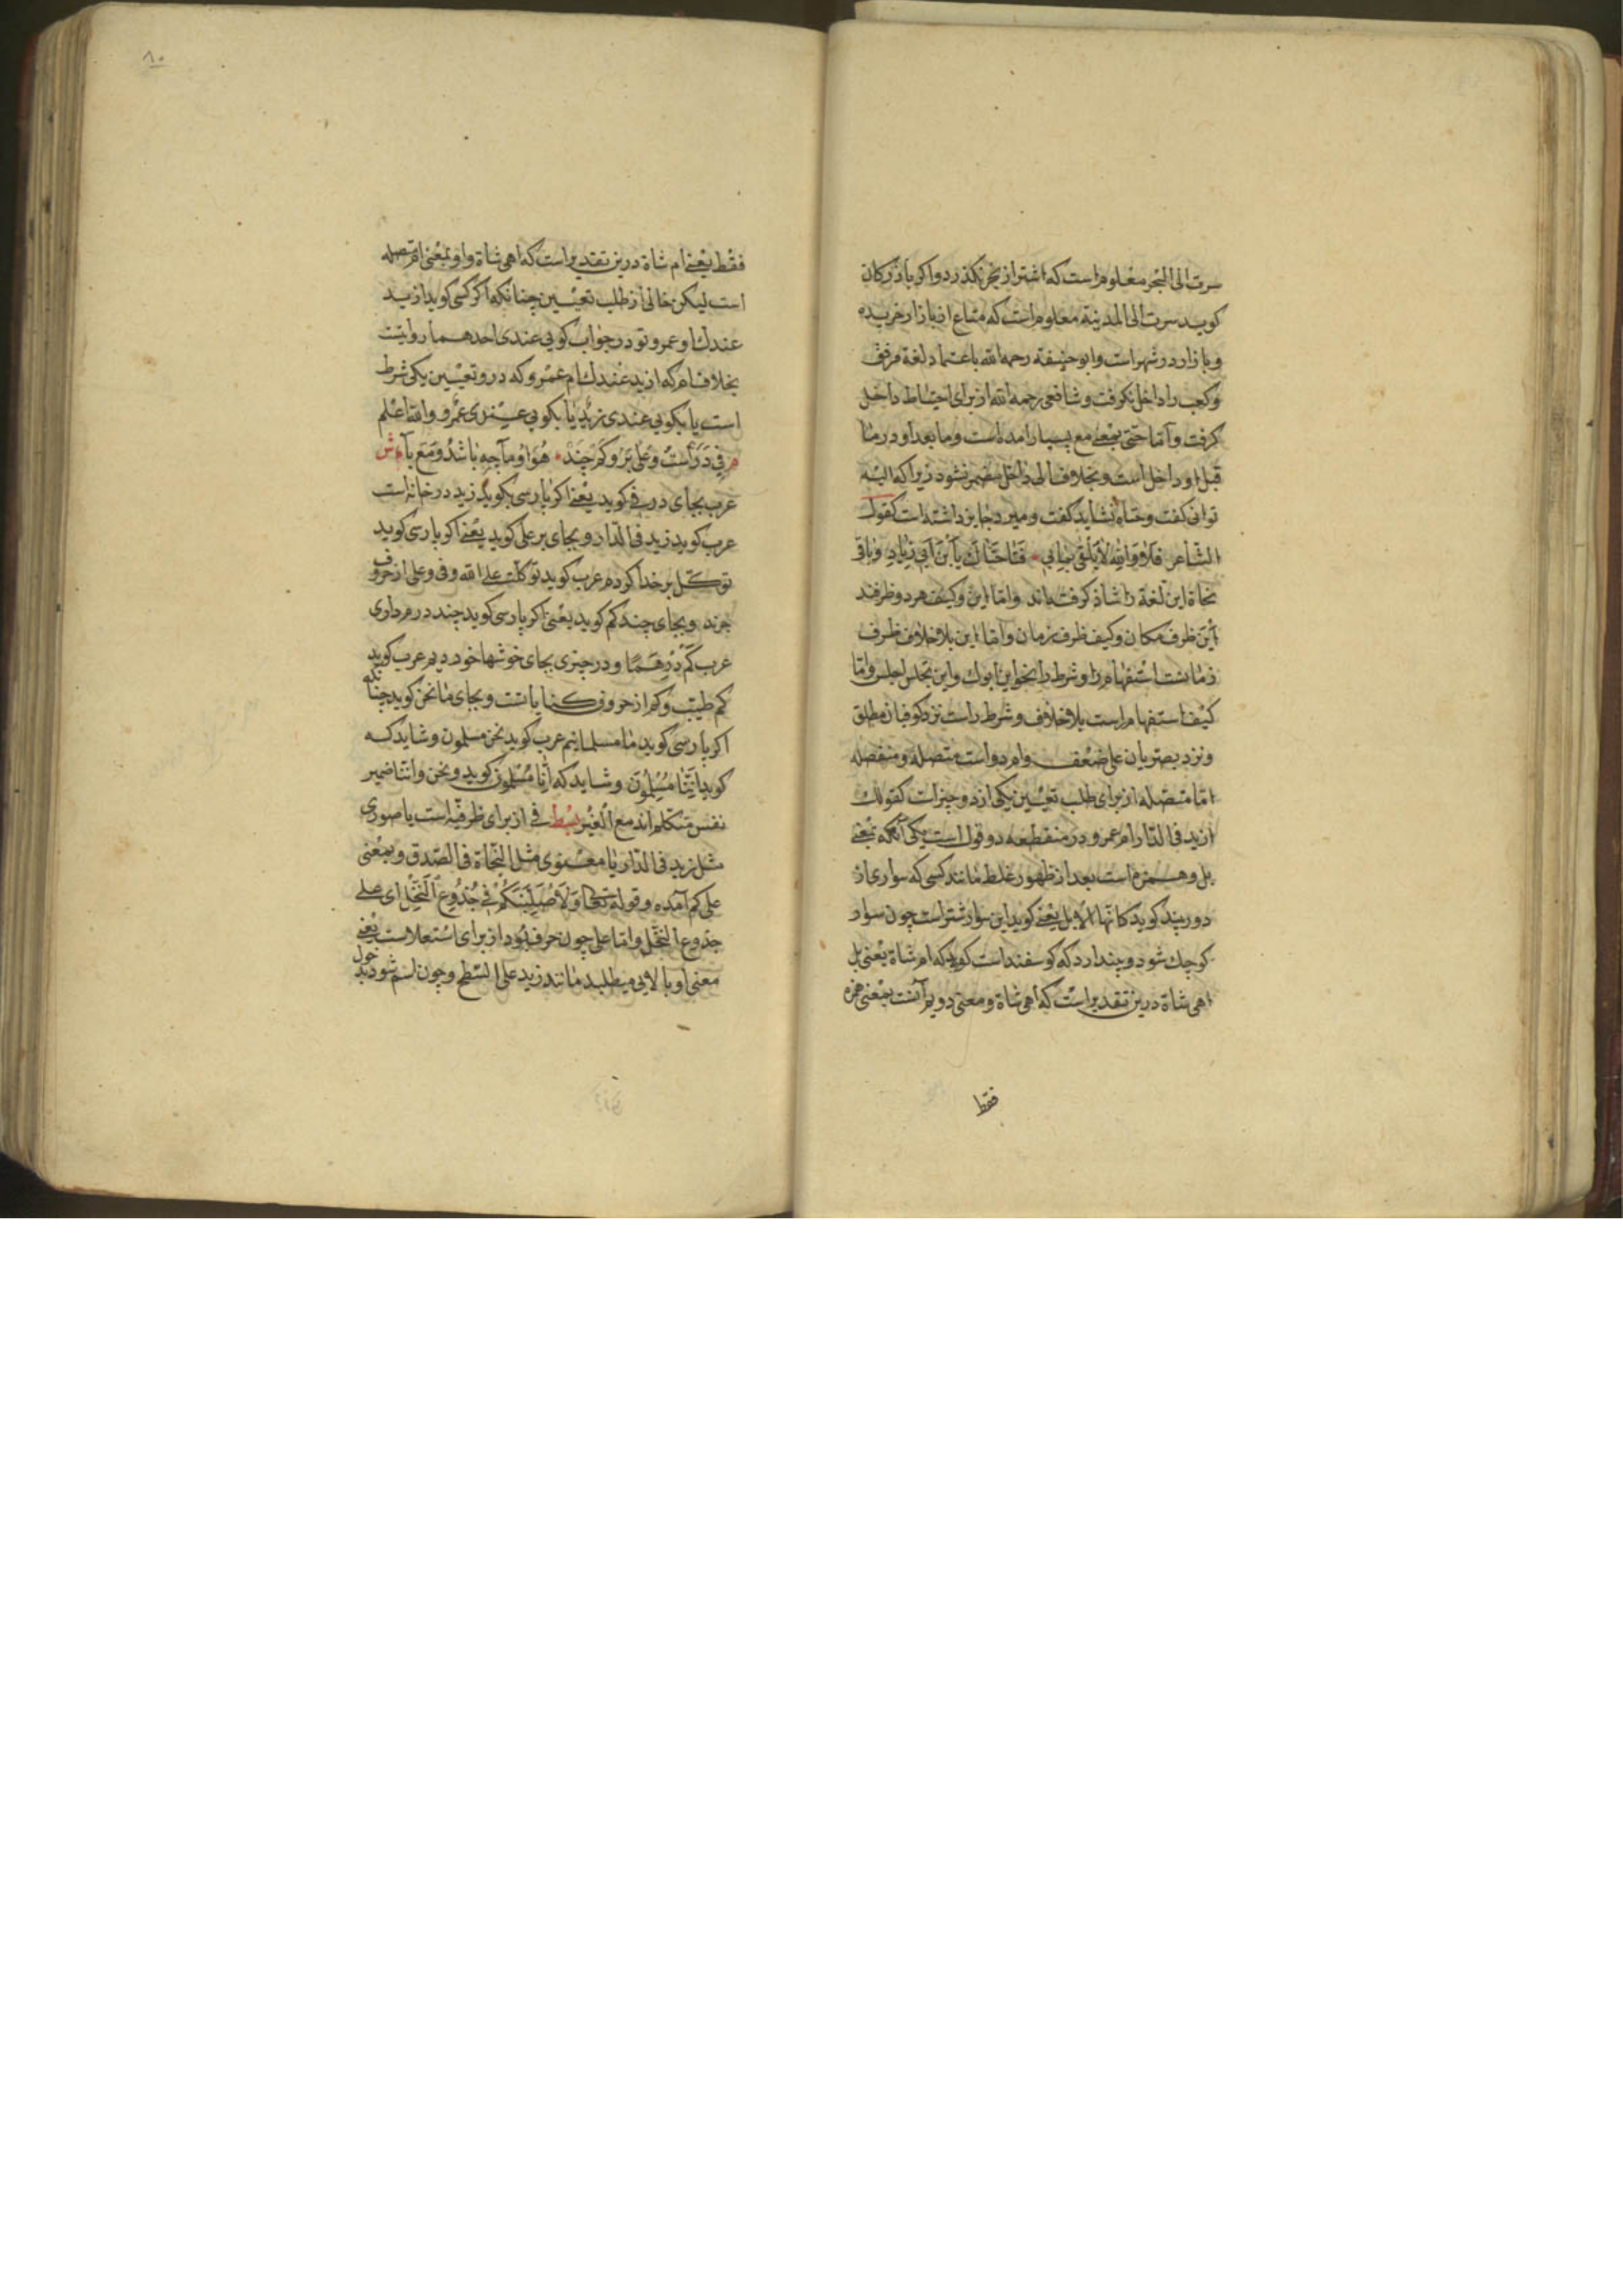 سرت الی البحر معلوم است که اشتر از بحر نگذرد و اکر بازرکان
کوید سرت الی المدینة معلوم است که متاع از بازار خریده
و بازار در شهر است و ابو حنیفة رحمه الله باعتماد لغة مرفق
و کعب را داخل نکرفت و شافعی رحمه الله از برای احتیاط داخل
کرفت و اما حتی بمعنی مع بسیار امده است و ما بعد او در ما
قبل او داخل است و بخلاف الی داخل مضمر نشود زیرا که الیه
توانی کفت و حتاه نشاید کفت و مبرد جایز داشته است کقول
الشاعر فلا والله لا یلقی * فتا حتاک یا بن ابی زیاد و باقی
نحاة این لغة را شاذ کرفته اند و اما این و کیف هر دو ظرفند
این ظرف مکان و کیف ظرف زمان و اما این بلا خلاف ظرف
استفهام را و شرط را نحو این ابوک و این تجلس اجلس و اما
کیف استفهام راست بلا خلاف و شرط راست نزد کوفیان مطلق
و نزد بصریان علی ضعف و ام دو است متصله و منفصله
اما متصله از برای طلب تعیین یکی از دو چیز است کقولک
ازید فی الدار ام عمرو و در منقطعه دو قول است یکی آنکه بمعنی
بل و همزه است بعد از ظهور غلط مانند کسی که سواری از
دور بیند کوید کانها الابل یعنی کوید این سوار شتر است چون سوار
کوچک شود و پندارد که کوسفند است کوید که ام شاة یعنی بل
اهی شاة درین تقدیر است که اهی شاة و معنی دویم آنست بمعنی همزه
فقط
۸۰
فقط یعنی ام شاة درین تقدیر است که اهی شاة و او بمعنی ام متصله
است لیکن خالی از طلب تعیین چنانکه اکر کسی کوید ازید
عندک او عمرو تو در جواب کویی عندی احدهما روا
بخلاف ام که ازید عندک ام عمرو که درو تعیین یکی شرط
است یا بکویی عندی زید یا بکویی عندی عمرو والله اعلم
م فی در است و علی بر و کم چند * هو او ما چه باشد و مع با * ش
عرب بجای در فی کوید یعنی اکر پارسی بکوید زید در خانه است
عرب کوید زید فی الدار و بجای بر علی کوید یعنی اکر پارسی کوید
توکل بر خدا کردم عرب کوید توکلت علی الله و فی و علی از حروف
جرند و بجای چند کم کوید یعنی اکر پارسی کوید چند درم داری
عرب کم درهما و در چیزی بجای خوشها خود دیدم عرب کوید
کم طیب و کم از حروف کنایاتست و بجای ما نحن کوید چنانکه
اکر پارسی کوید ما مسلمانیم عرب کوید نحن مسلمون و شاید که
کوید اننا مسلمون و شاید که انا مسلمون کوید و نحن و اننا ضمیر
نفس متکلم اند مع الغیر بسط فی از برای ظرفیة است یا صوری
مثل زید فی الدار یا معنوی مثل النجاة فی الصدق و بمعنی
علی کم آمده و قوله تعالی و لاصلبنکم فی جذوع النخل ای علی
جذوع النخل و اما علی چون حرف بود از برای استعلاست یعنی
معنی او بالایی میطلبد مانند زید علی السطح و چون اسم شود